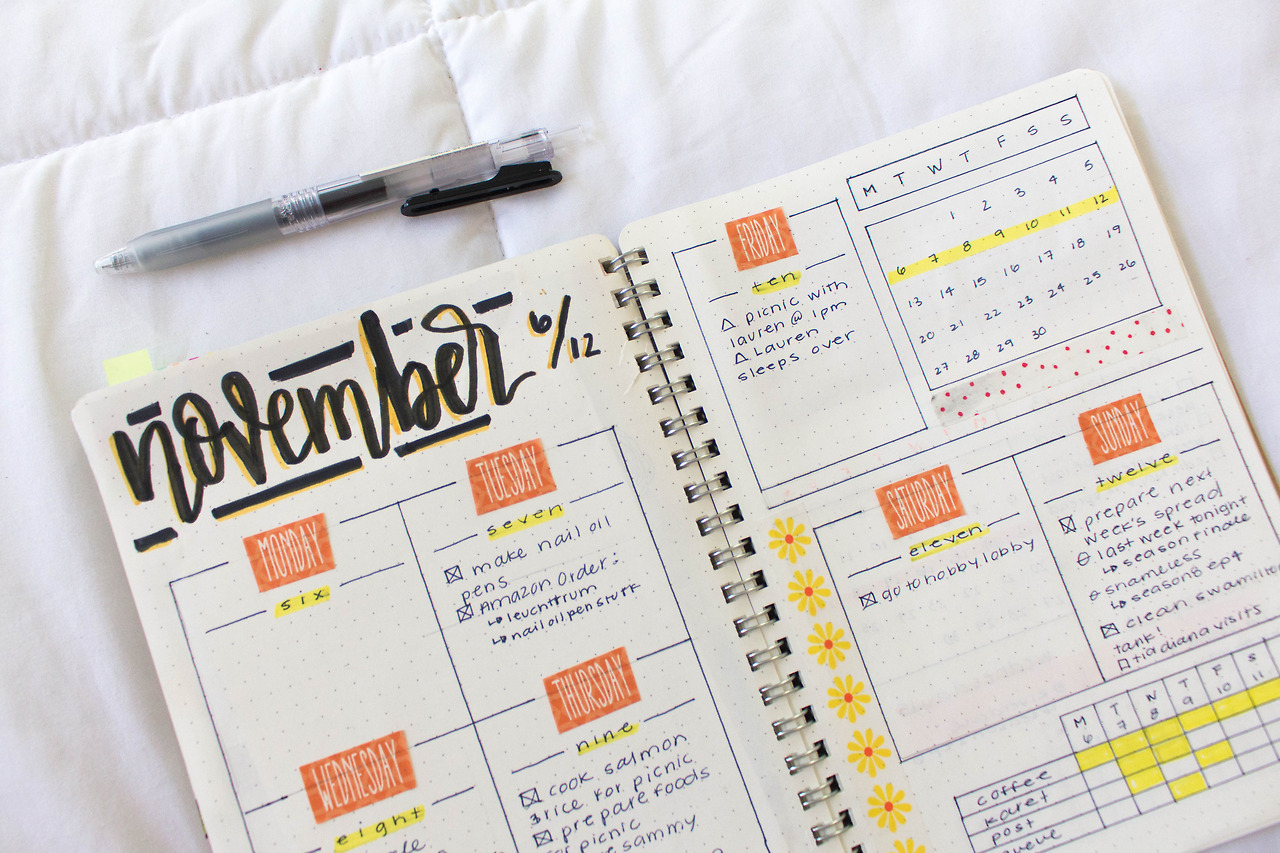 november 6/12
MONDAY
six
TUESDAY
seven
make nail oil
pens
Amazon Order:
↳ leuchttrum
↳ nail oil pen stuff
WEDNESDAY
eight
THURSDAY
nine
cook salmon
rice for picnic
prepare foods
for picnic
sammy
FRIDAY
ten
△ picnic with
lauren @ 1pm
△ Lauren
sleeps over
M T W T F S S
1 2 3 4 5
6 7 8 9 10 11 12
13 14 15 16 17 18 19
20 21 22 23 24 25 26
27 28 29 30
SATURDAY
eleven
go to hobby lobby
SUNDAY
twelve
prepare next
week's spread
last week tonight
↳ season finale
shameless
↳ season 8 ep 4
clean swamilton
tank!
tia diana visits
M T W T F S
6 7 8 9 10 11
coffee
karet
post
queue